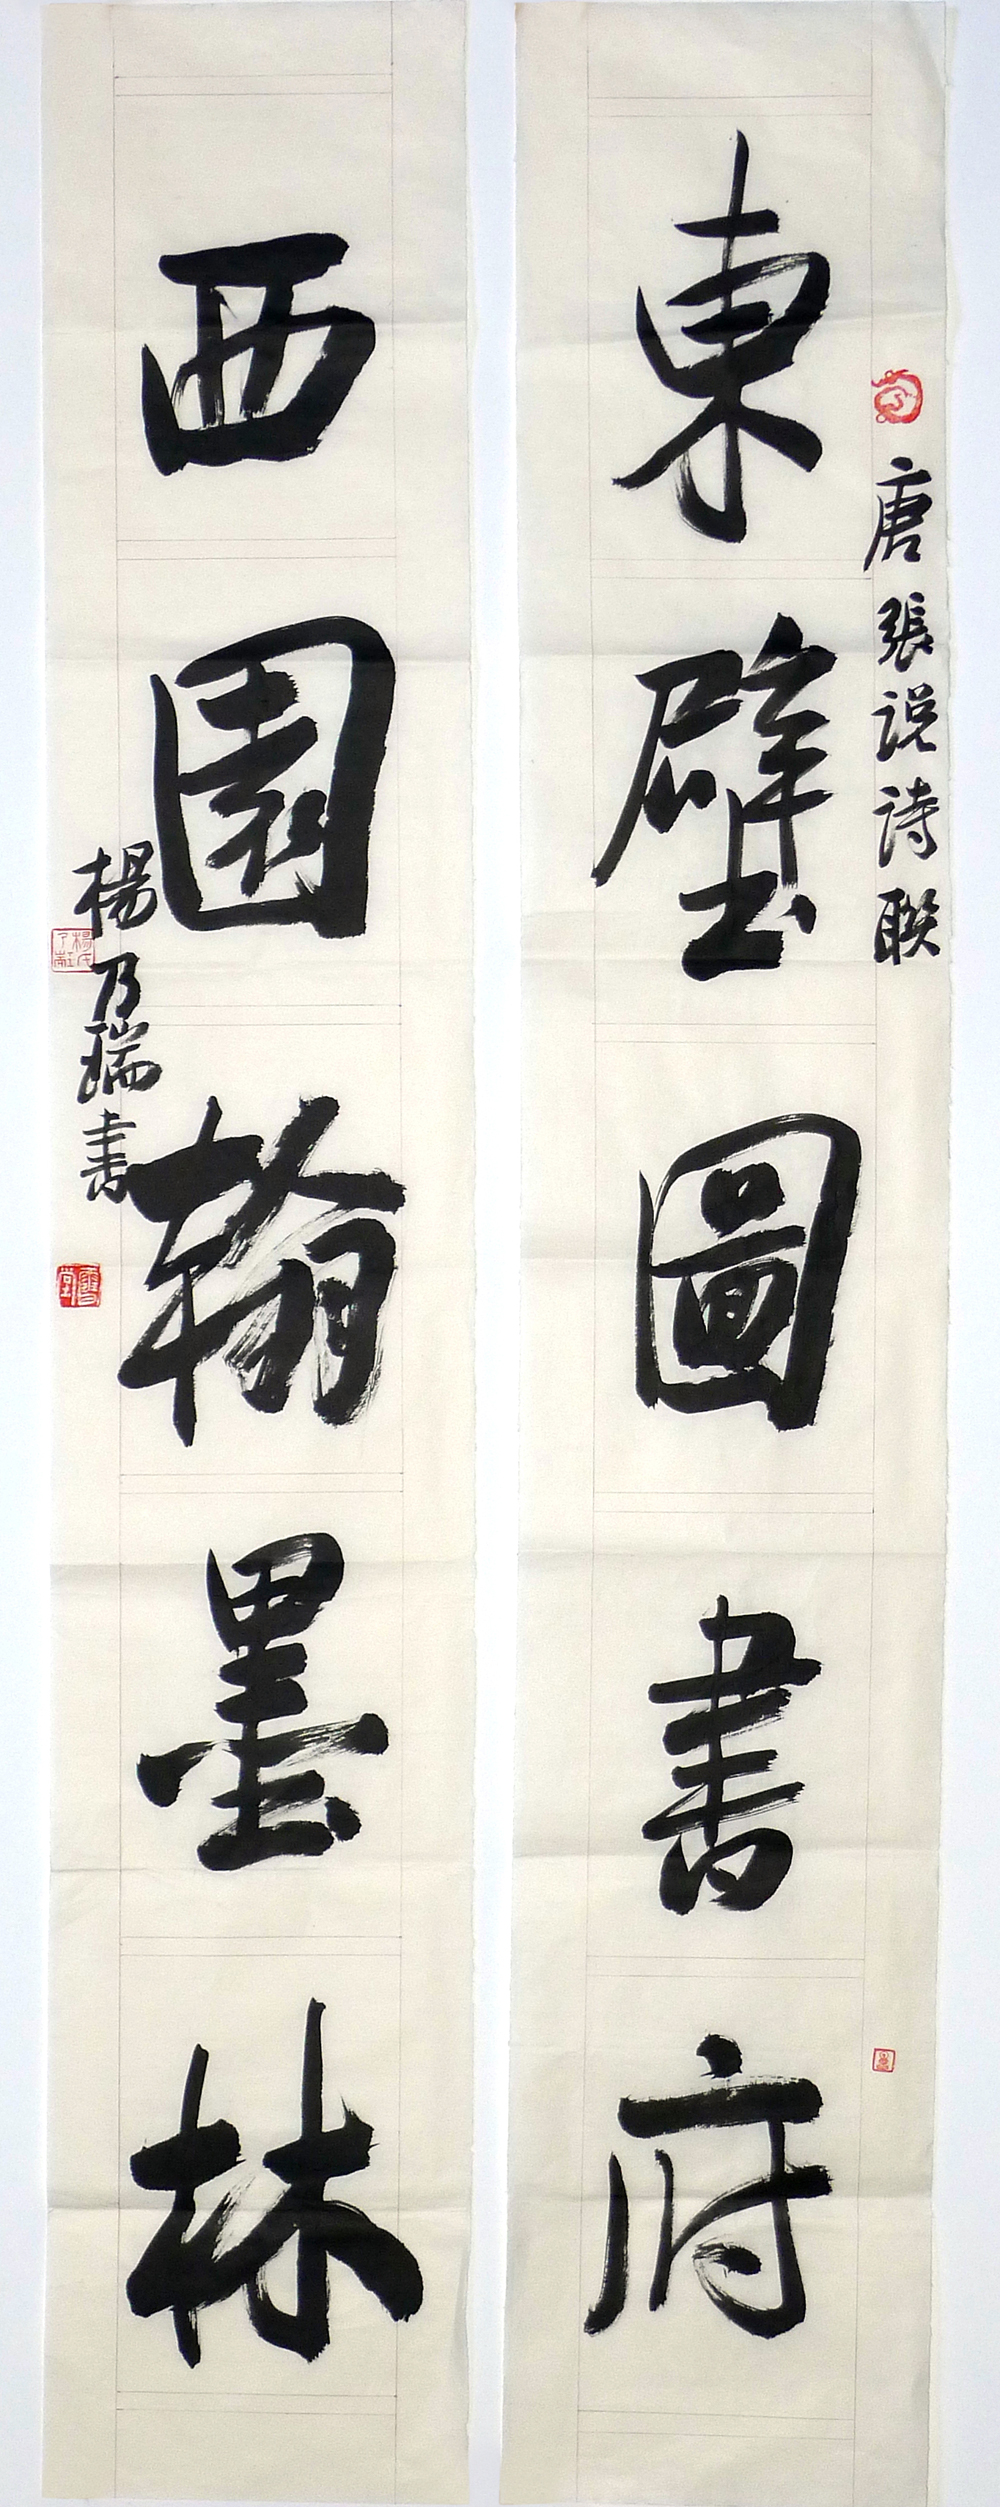 唐張説詩聯
東壁圖書府
西園翰墨林
楊乃瑞書